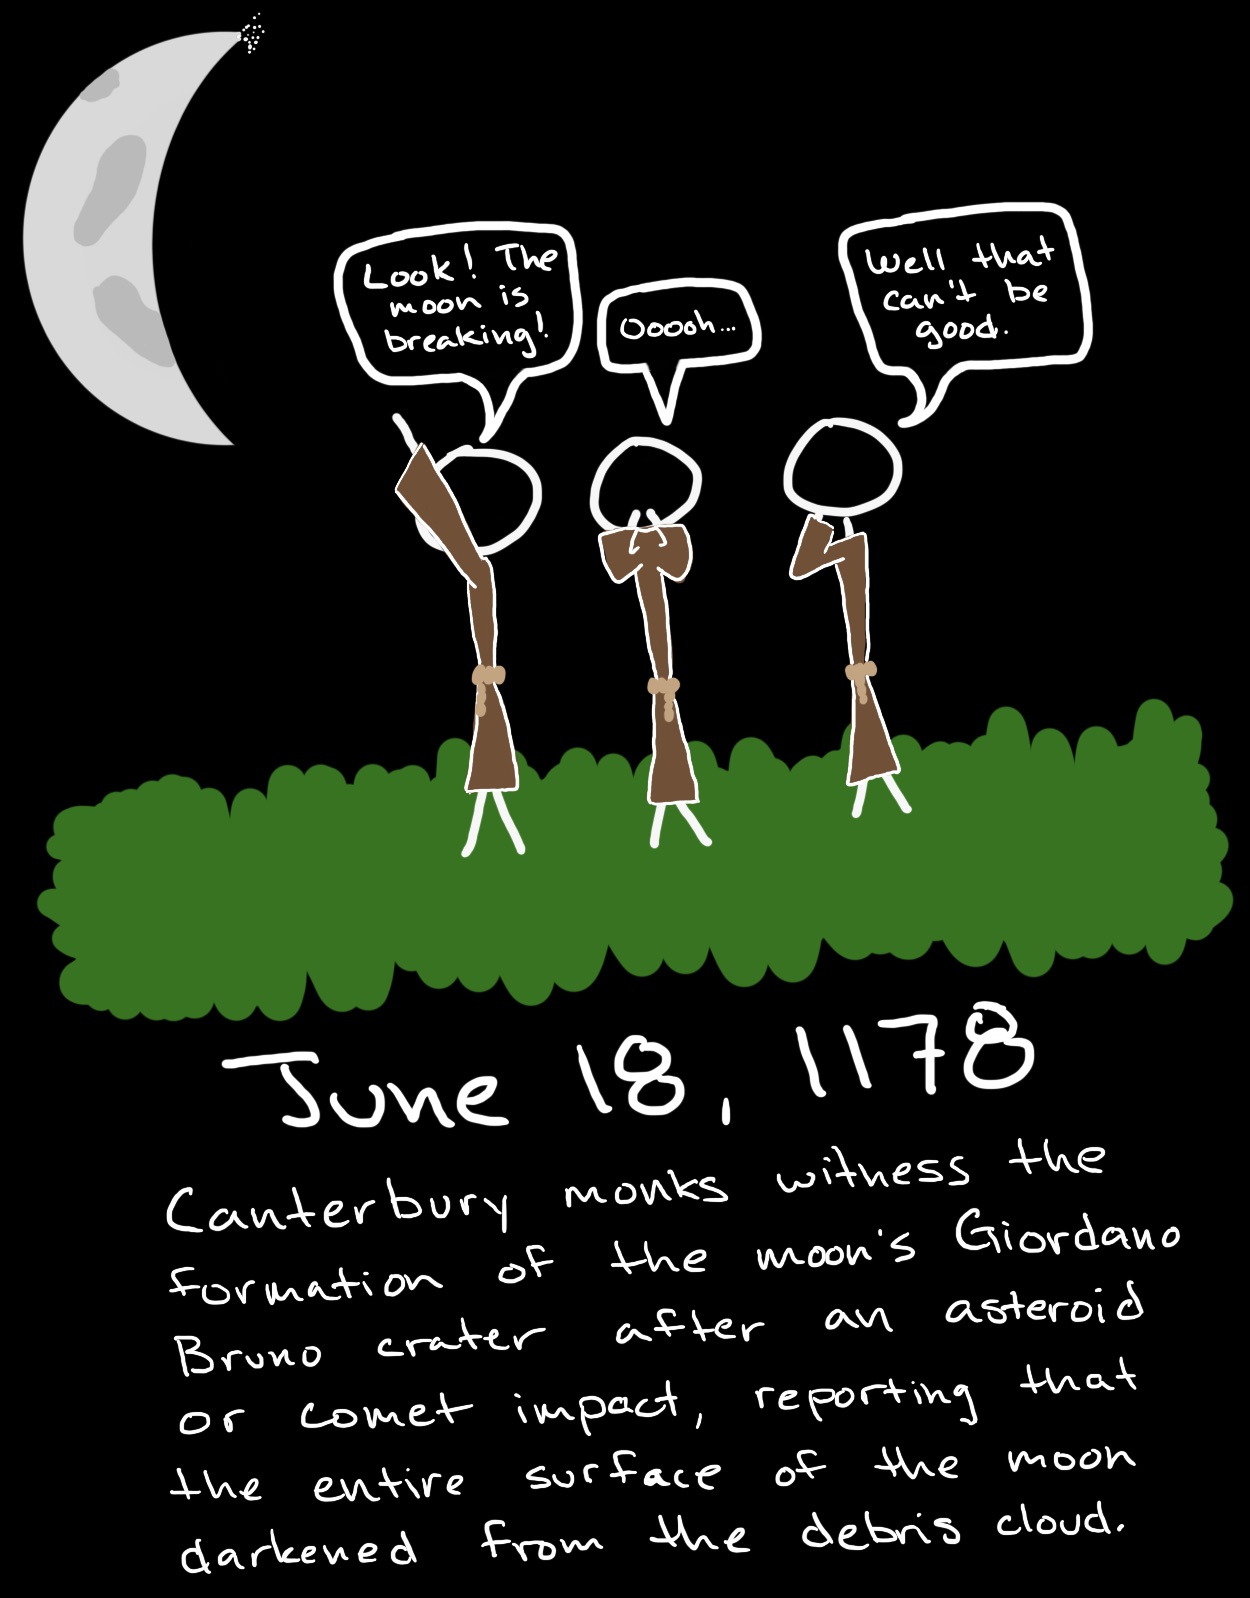 Look! The
moon is
breaking!
Ooooh...
Well that
can't be
good.
June 18, 1178
Canterbury monks witness the
formation of the moon's Giordano
Bruno crater after an asteroid
or comet impact, reporting that
the entire surface of the moon
darkened from the debris cloud.